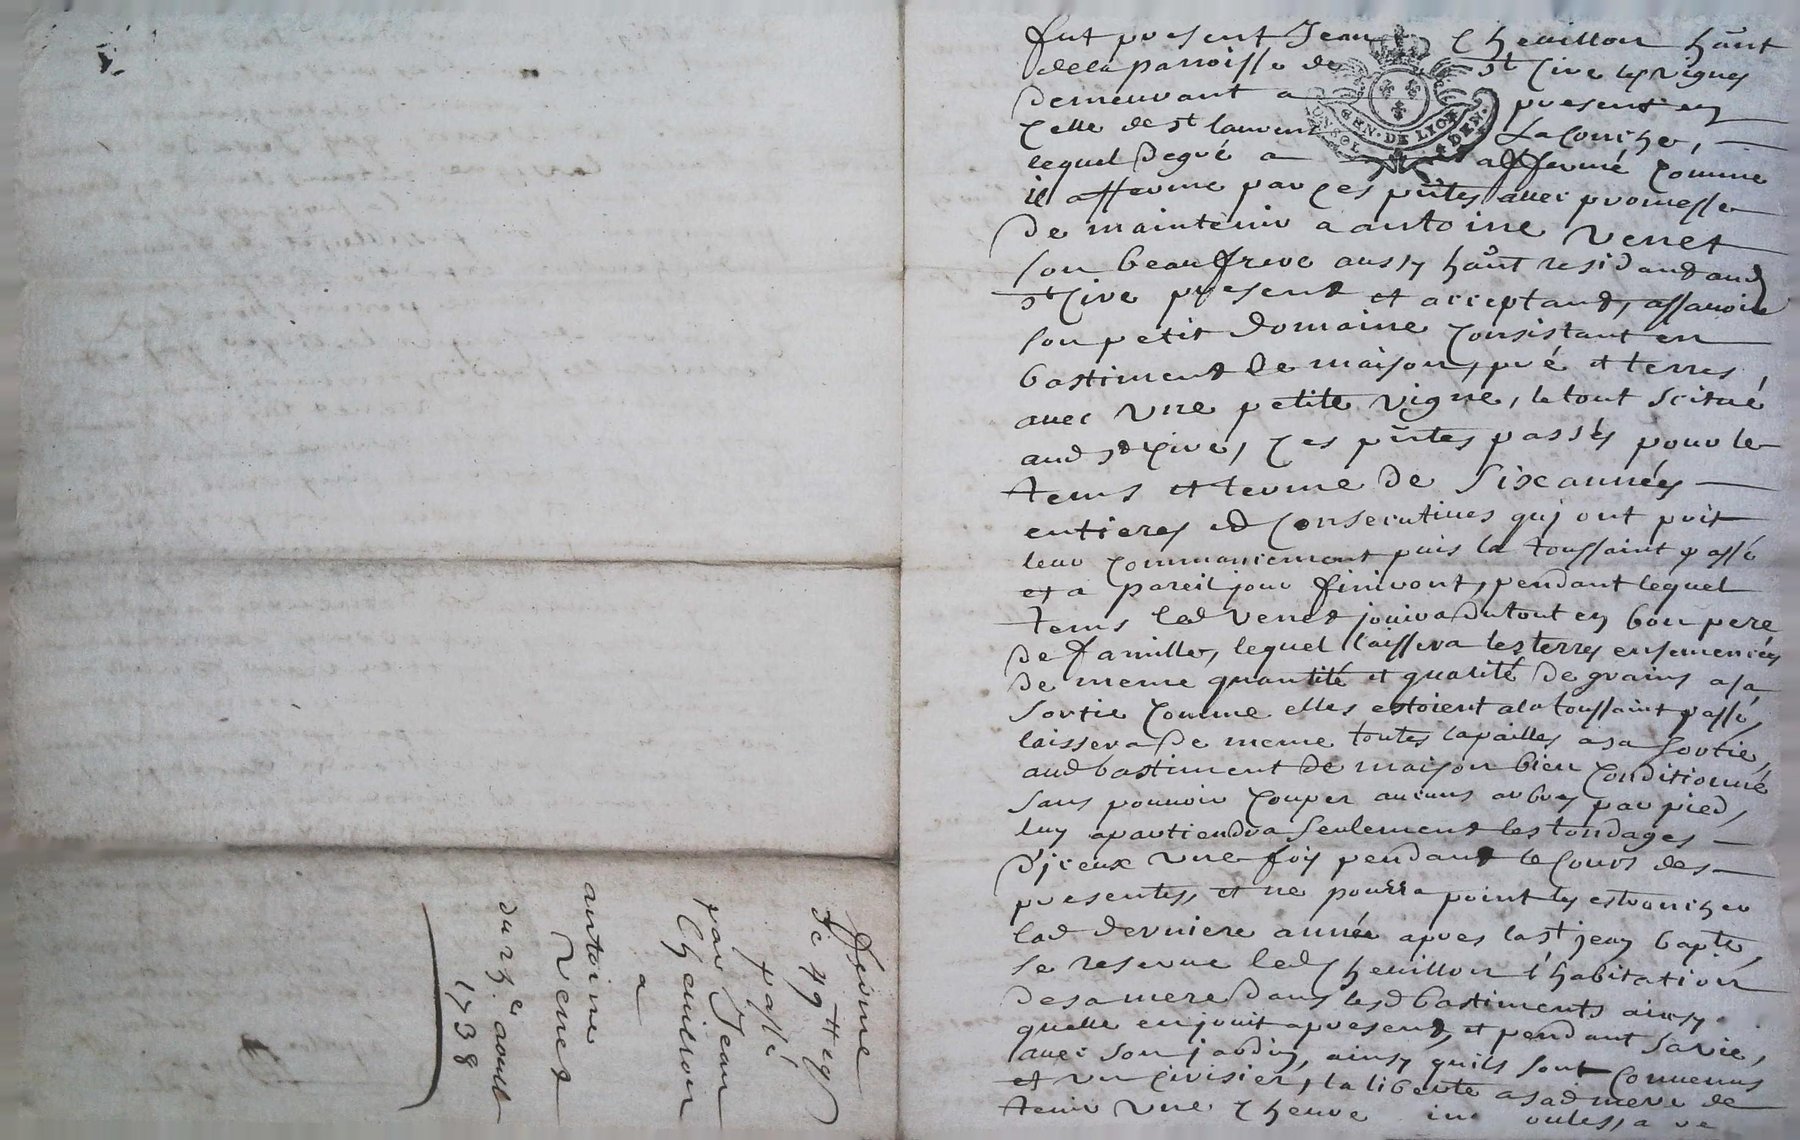 fut present Jean Cheuillon hãnt
dela parroisse de st Cire les vignes
demeurant a present en
celle de st laurent La Conche,
UN SOL GEN · DE LION DEN ·
lequel degré a affermé comme
il afferme par ces pñtes auec promesse
de maintenir a antoine Venet
son beau frere aussy hãnt residant aud
st Cire present et acceptant, assauoir
son petit domaine consistant en
bastiment de maison, pré et terres,
auec une petite vigne, le tout scitué
aud st Cire, ces pñtes passés pour le
tems et terme de six années
entieres et consecutiues quj ont prit
leur commancement puis la toussaint passé
et a pareil jour finiront, pendant lequel
tems led Venet jouira du tout en bon pere
de famille, lequel laissera les terres ensemencées
de meme quantité et qualité de grains a sa
sortie comme elles estoient a la toussaint passé,
laissera de meme toutes la pailles a sa sortie,
aud bastiment de maison bien conditionné
sans pouuoir couper aucuns arbres par pied,
luy apartiendra seulement les tondages
d'jceux une fois pendant le cours des
presentes, et ne pourra point les estroncher
lad derniere année apres la st jean bapte,
se reserue led Cheuillon l'habitation
de sa mere dans lesd bastiments ainsy
quelle en jouit apresent, et pendant sa vie,
auec son jardin, ainsy quils sont conuenus
et un cirisier, la liberté a sad mere de
tenir une cheure
ferme
de 49tt
passé
par Jean
Cheuillon
a
antoine
Venet
du 25e aoust
1738